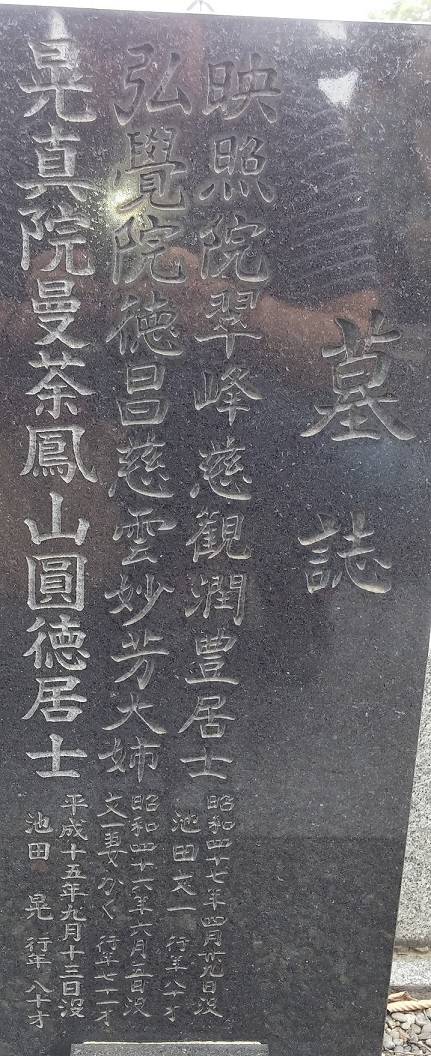 墓誌
映照院翠峰慈観潤豊居士
昭和四十七年四月廿九日没
池田文一 行年八十才
弘覺院徳昌慈雲妙芳大姉
昭和四十六年六月五日没
文一妻かく 行年七十一才
晃真院曼荼鳳山圓徳居士
平成十五年九月十三日没
池田 晃 行年八十才